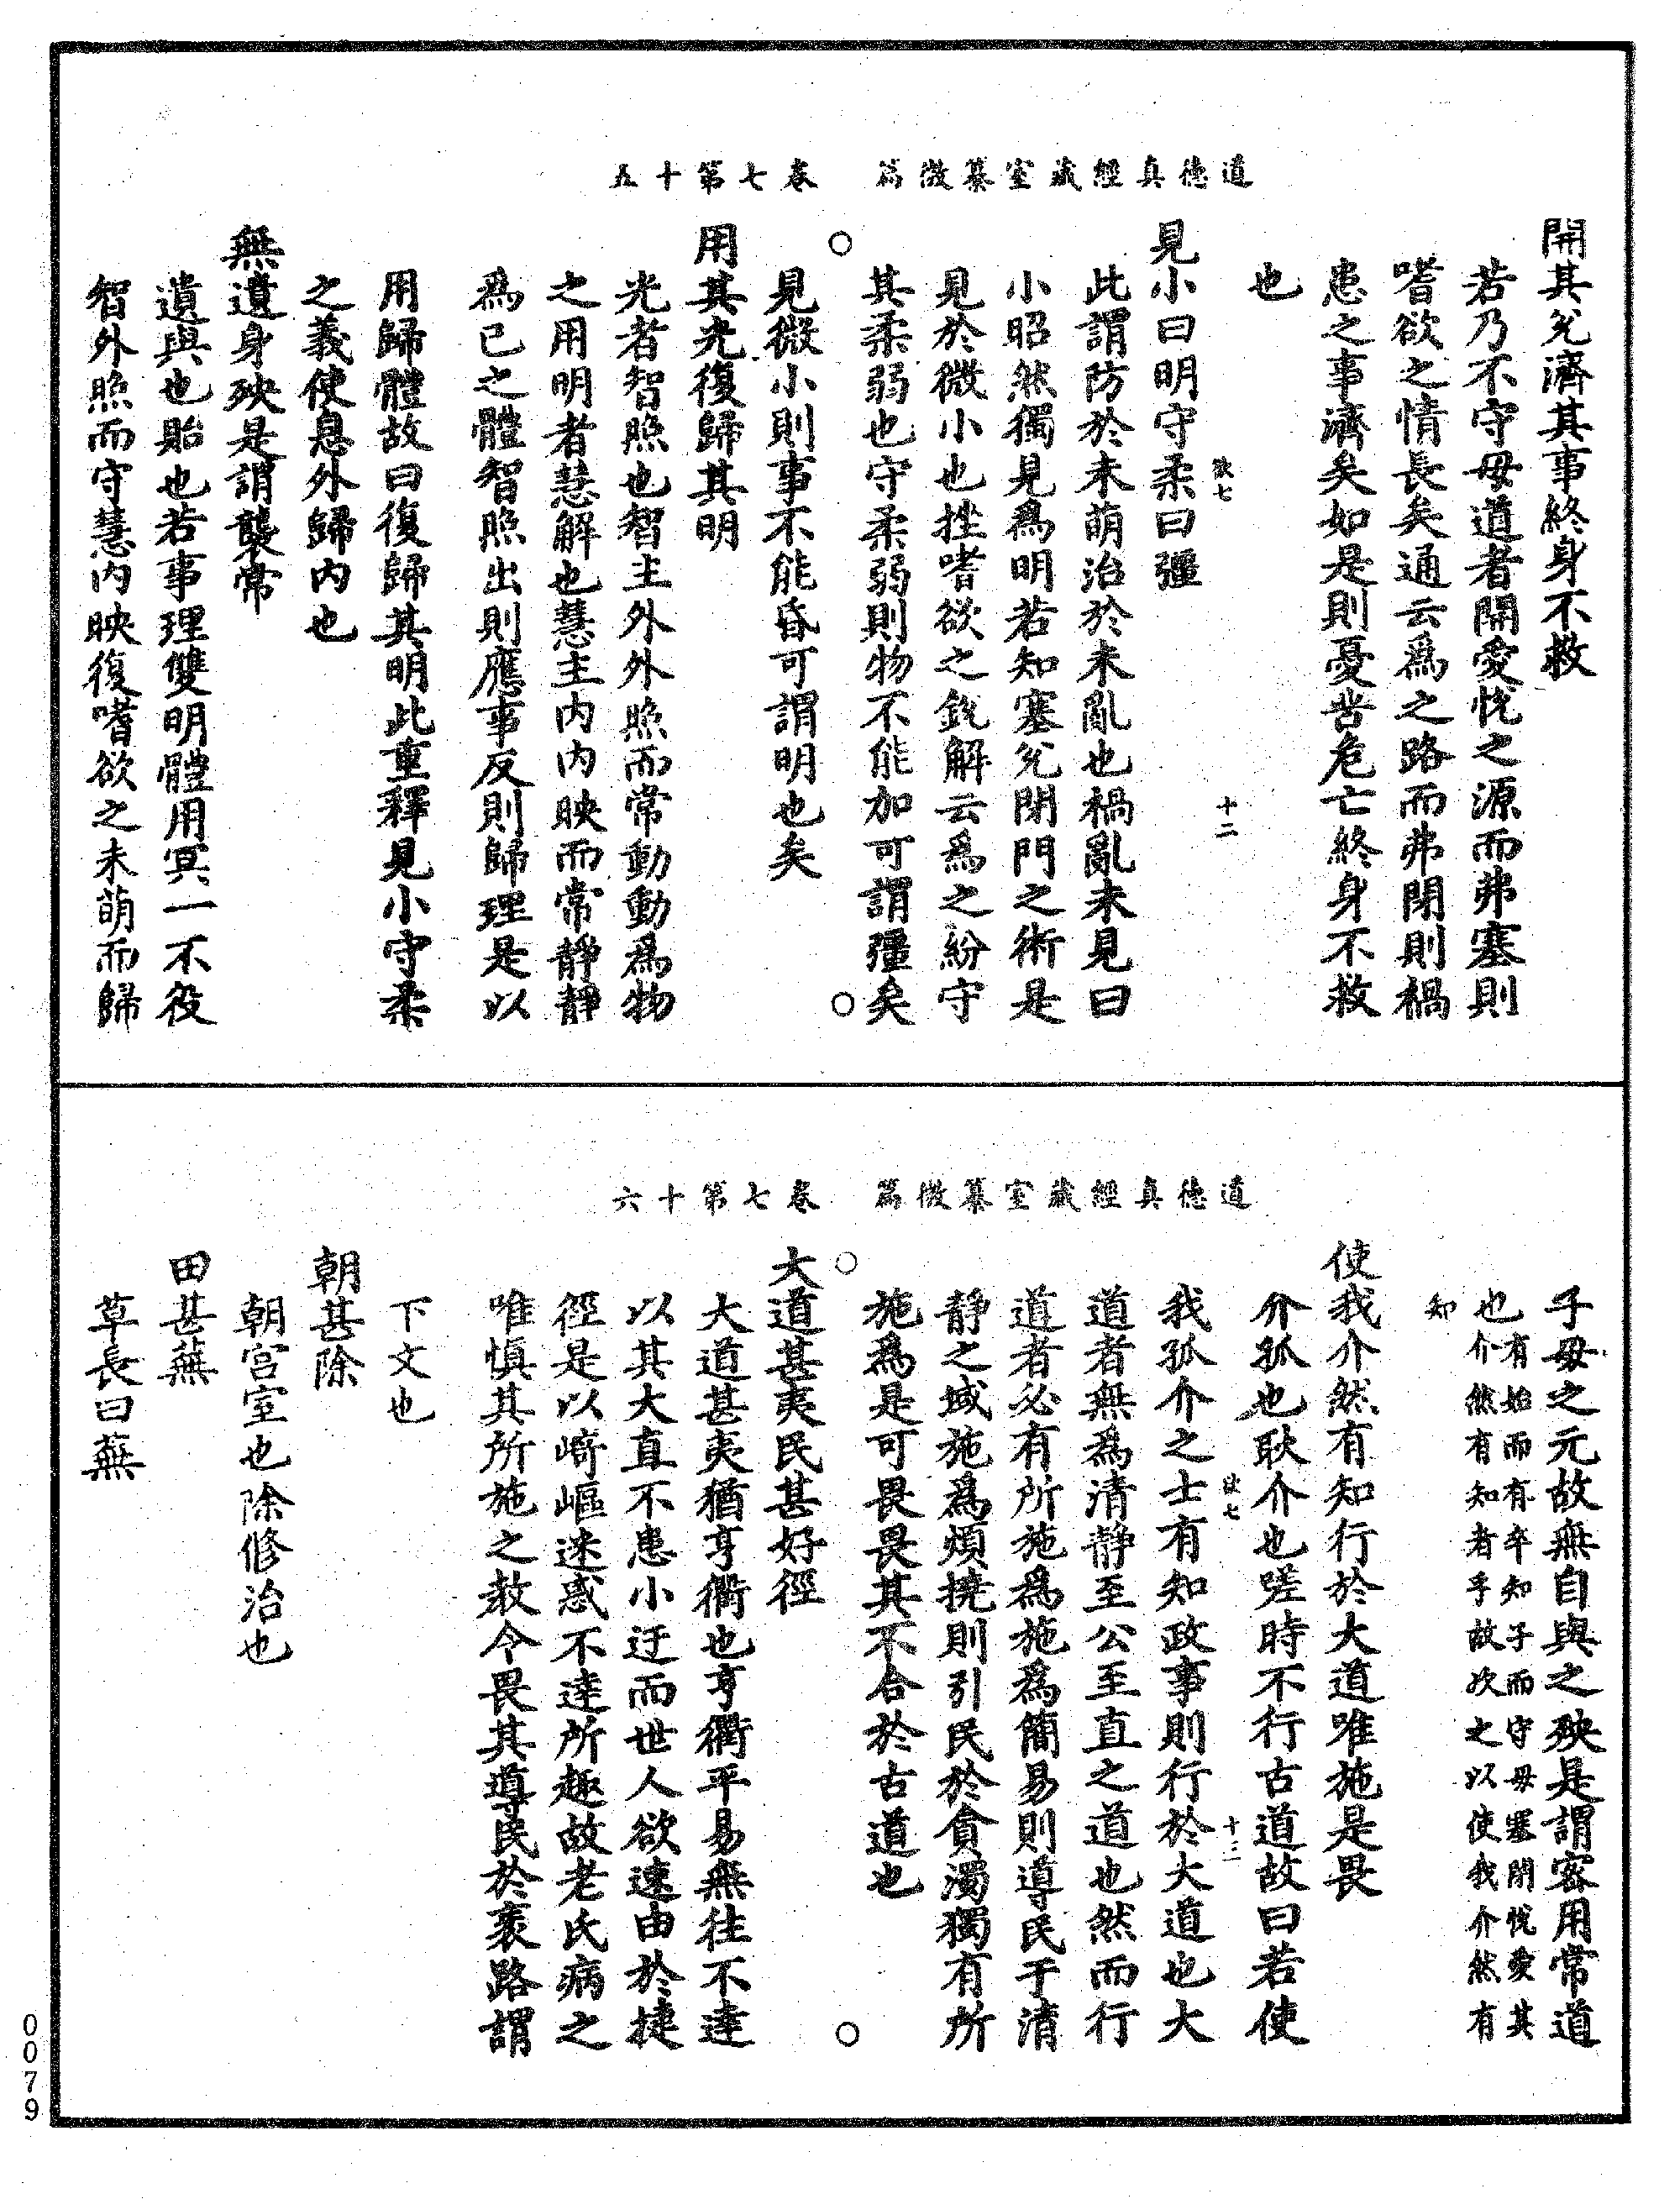 道德真經藏室纂微篇　卷七第十五
開其兊濟其事終身不救
若乃不守母道者開愛悅之源而弗塞則
嗜欲之情長矣通云爲之路而弗閉則禍
患之事濟矣如是則憂苦危亡終身不救
也
見小曰明守柔曰彊
欲七　十二
此謂防於未萌治於未亂也禍亂未見曰
小昭然獨見爲明若知塞兊閉門之術是
見於微小也挫嗜欲之銳解云爲之紛守
其柔弱也守柔弱則物不能加可謂彊矣
○　○
見微小則事不能昏可謂明也矣
用其光復歸其明
光者智照也智主外外照而常動動爲物
之用明者慧解也慧主内内映而常靜靜
爲已之體智照出則應事反則歸理是以
用歸體故曰復歸其明此重釋見小守柔
之義使息外歸内也
無遺身殃是謂襲常
遺與也貽也若事理雙明體用冥一不役
智外照而守慧内映復嗜欲之未萌而歸
道德真經藏室纂微篇　卷七第十六
子母之元故無自與之殃是謂密用常道
也有始而有卒知子而守母塞閉悅愛其
介然有知者乎故次之以使我介然有
知
使我介然有知行於大道唯施是畏
介孤也耿介也嗟時不行古道故曰若使
我孤介之士有知政事則行於大道也大
欲七　十三
道者無爲清靜至公至直之道也然而行
道者必有所施爲施爲簡易則導民于清
靜之域施爲煩撓則引民於貪濁獨有所
施爲是可畏畏其不合於古道也
○　○
大道甚夷民甚好徑
大道甚夷猶亨衢也亨衢平易無往不達
以其大直不患小迂而世人欲速由於捷
徑是以崎嶇迷惑不達所趣故老氏病之
唯慎其所施之教令畏其導民於衺路謂
下文也
朝甚除
朝宫室也除修治也
田甚蕪
草長曰蕪
0079